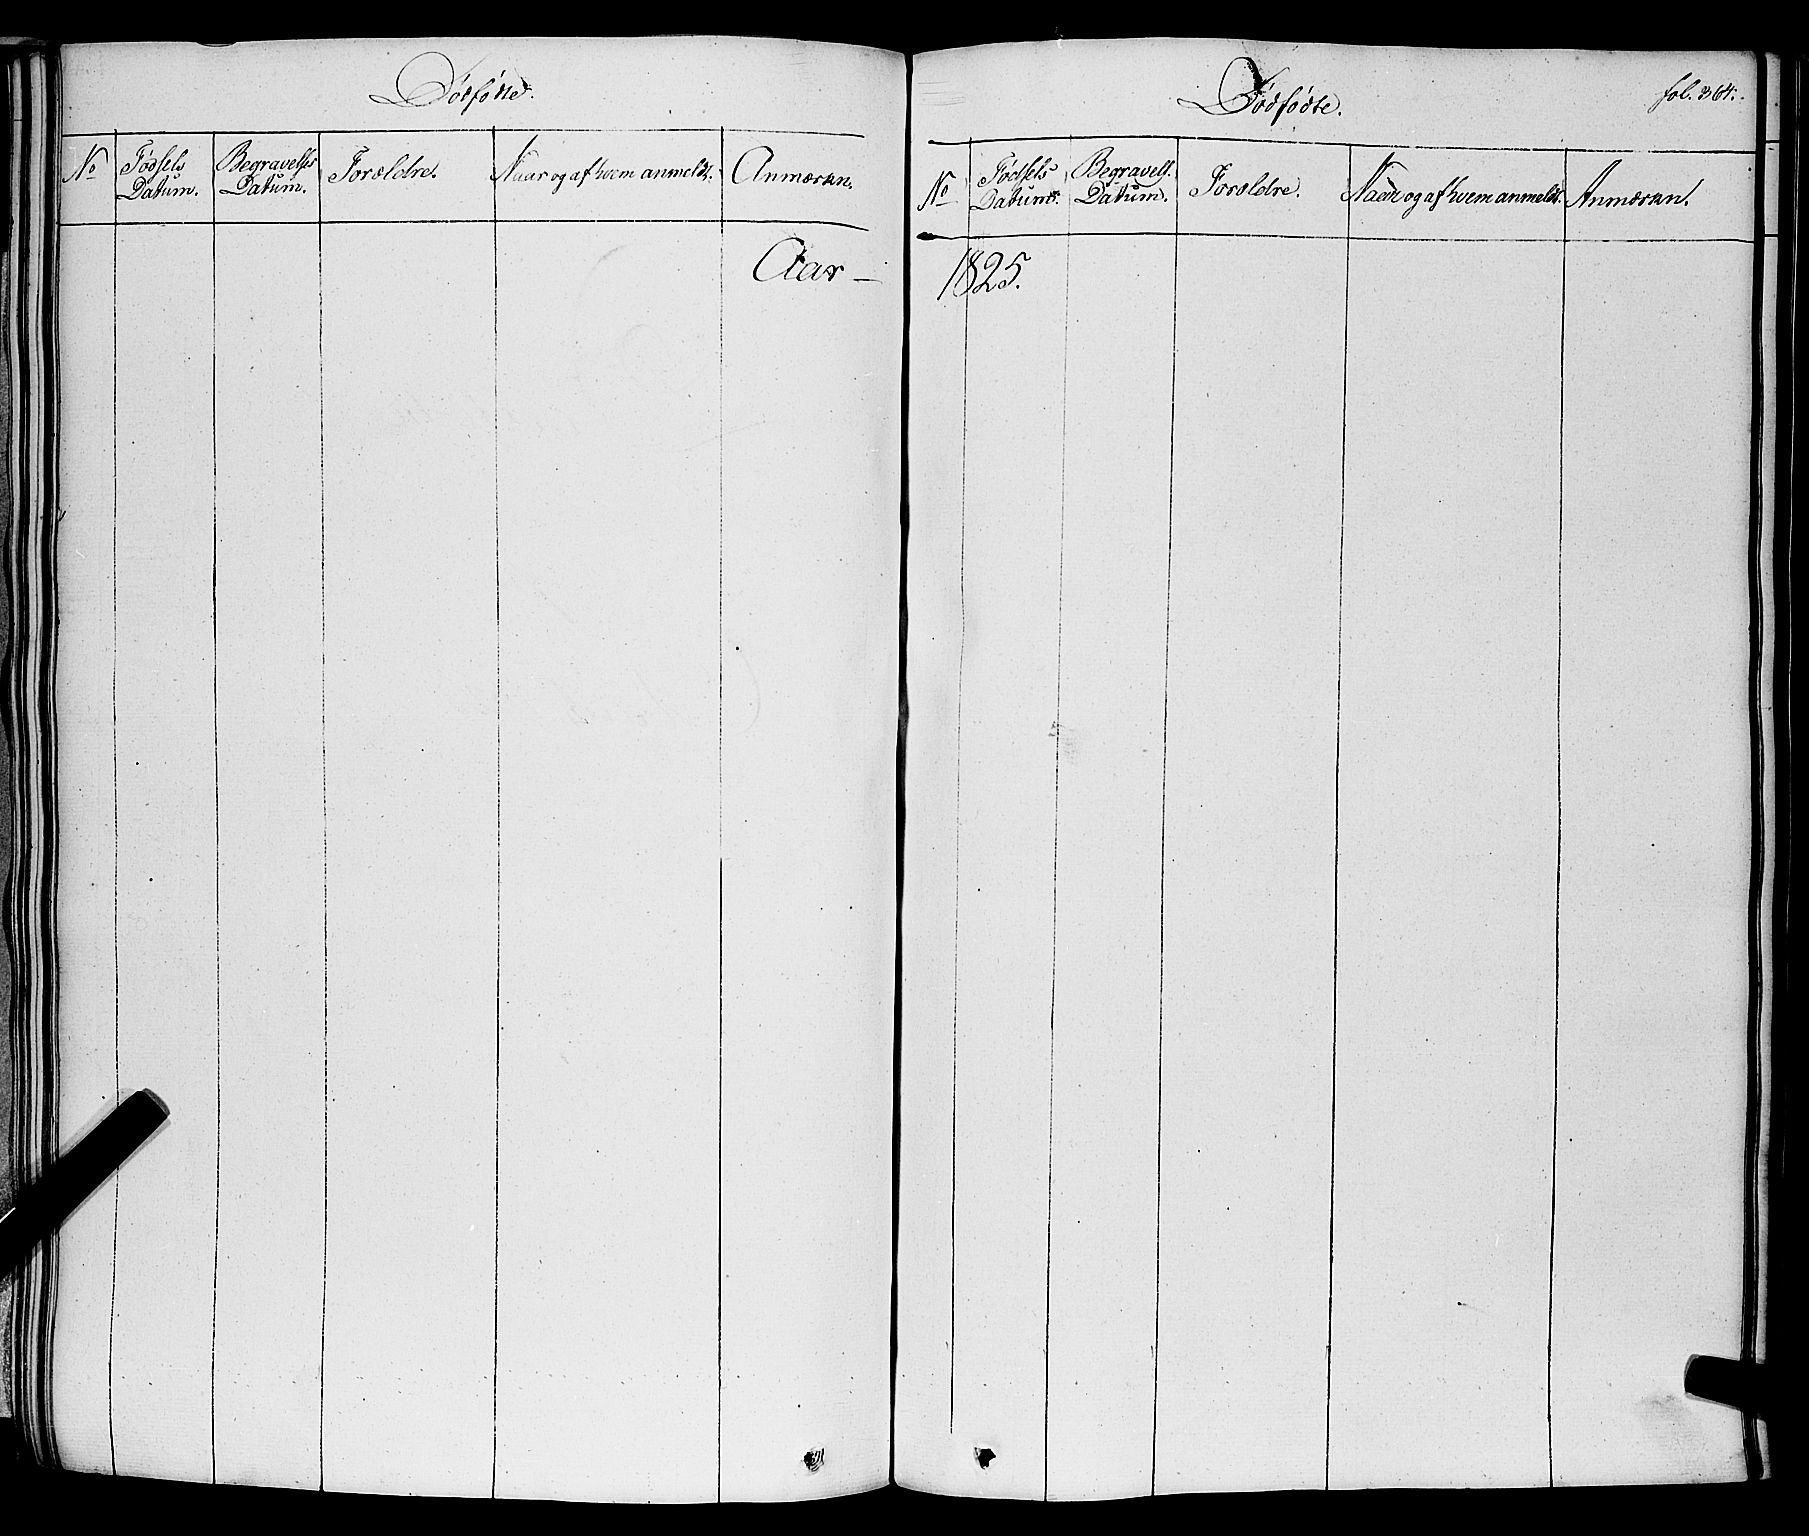 Dødfødte.
No
Fødsels Datum.
Begravelses Datum.
Forældre.
Naar og af hvem anmeldt.
Anmærkn.
Aar —
Dødfødte.
fol. 364.
No
Fødsels Datum.
Begravels. Datum.
Forældre.
Naar og af hvem anmeldt.
Anmærkn.
1825.